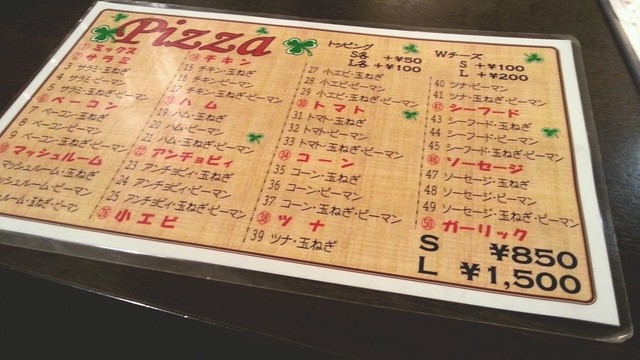 Pizza
①ミックス
②サラミ
3 サラミ・玉ねぎ
4 サラミ・ピーマン
5 サラミ・玉ねぎ・ピーマン
ベーコン
ベーコン・玉ねぎ
8 ベーコン・ピーマン
9 ベーコン・玉ねぎ・ピーマン
マッシュルーム
マッシュルーム・玉ねぎ
マッシュルーム・ピーマン
玉ねぎ・ピーマン
⑭チキン
15 チキン・玉ねぎ
16 チキン・ピーマン
17 チキン・玉ねぎ・ピーマン
⑱ハム
19 ハム・玉ねぎ
20 ハム・ピーマン
21 ハム・玉ねぎ・ピーマン
㉒アンチョビィ
23 アンチョビィ・玉ねぎ
24 アンチョビィ・ピーマン
25 アンチョビィ・玉ねぎ・ピーマン
㉖小エビ
トッピング
S各 +¥50
L各 +¥100
27 小エビ・玉ねぎ
28 小エビ・ピーマン
29 小エビ・玉ねぎ・ピーマン
㉚トマト
31 トマト・玉ねぎ
32 トマト・ピーマン
33 トマト・玉ねぎ・ピーマン
㉞コーン
35 コーン・玉ねぎ
36 コーン・ピーマン
37 コーン・玉ねぎ・ピーマン
㊳ツナ
39 ツナ・玉ねぎ
Wチーズ
S +¥100
L +¥200
40 ツナ・ピーマン
41 ツナ・玉ねぎ・ピーマン
㊷シーフード
43 シーフード・玉ねぎ
44 シーフード・ピーマン
45 シーフード・玉ねぎ・ピーマン
㊻ソーセージ
47 ソーセージ・玉ねぎ
48 ソーセージ・ピーマン
49 ソーセージ・玉ねぎ・ピーマン
㊿ガーリック
S ¥850
L ¥1,500